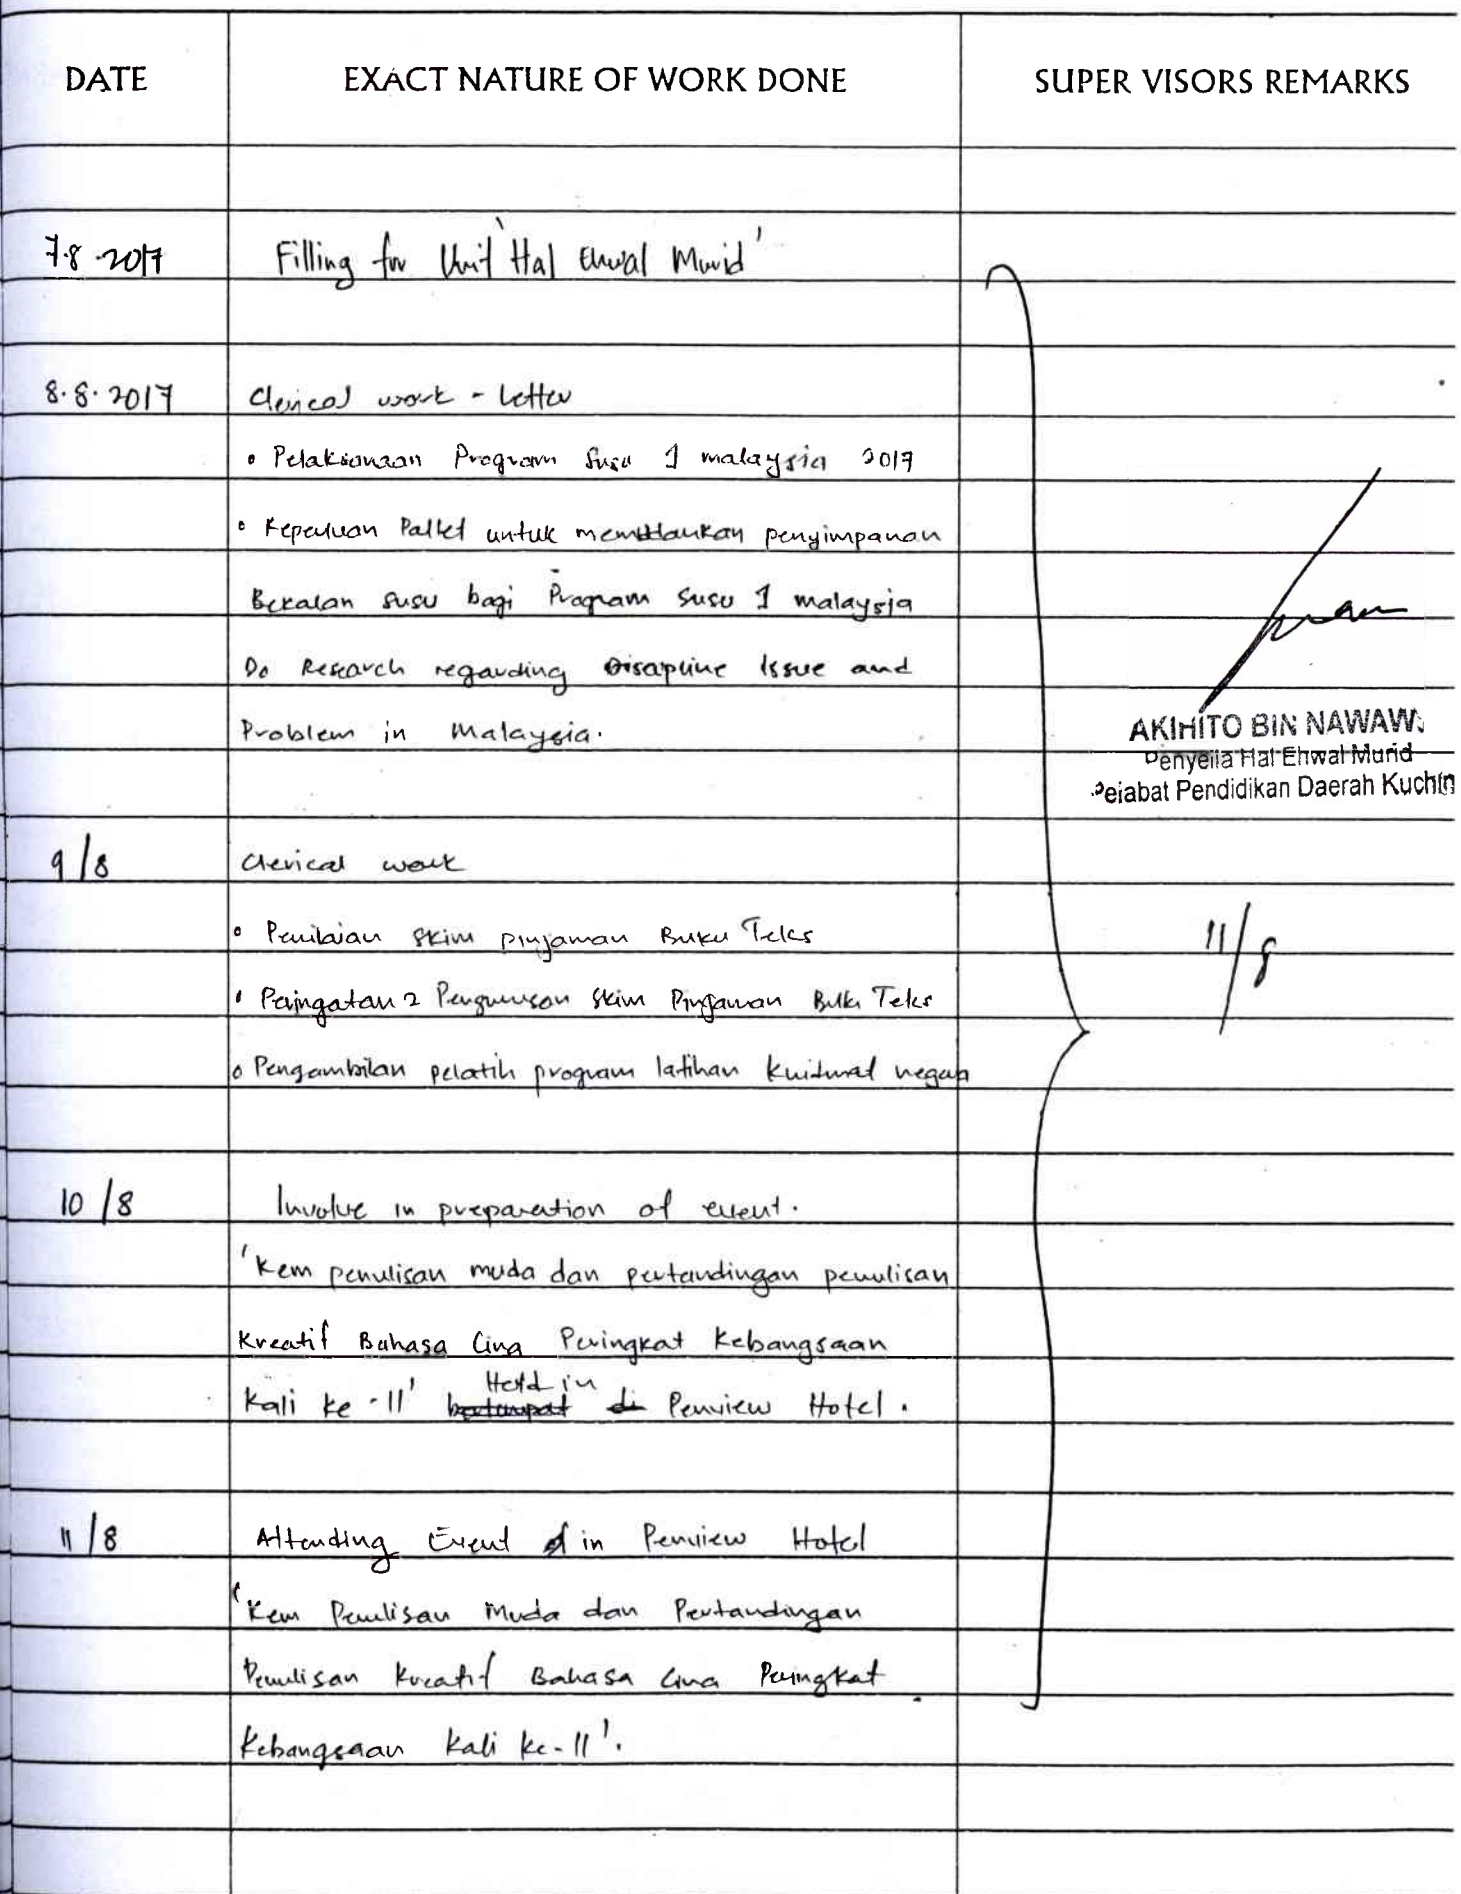 DATE
EXACT NATURE OF WORK DONE
SUPER VISORS REMARKS
7.8.2017
Filling for Unit 'Hal Ehwal Murid'
8.8.2017
Clerical work - Letter
• Pelaksanaan Program Susu 1 malaysia 2017
• Keperluan Pallet untuk penyimpanan
Bekalan susu bagi Program Susu 1 malaysia
Do Research regarding Discipline Issue and
Problem in Malaysia.
AKIHITO BIN NAWAWI
Penyelia Hal Ehwal Murid
Pejabat Pendidikan Daerah Kuchin
9/8
Clerical work
• Penilaian Skim pinjaman Buku Teks
• Peringatan 2 Pengurusan Skim Pinjaman Buku Teks
• Pengambilan pelatih program latihan khidmat negara
11/8
10/8
Involve in preparation of event.
'Kem penulisan muda dan pertandingan penulisan
Kreatif Bahasa Cina Peringkat Kebangsaan
Kali ke-11' bertempat di Held in Penview Hotel.
11/8
Attending Event in Penview Hotel
'Kem Penulisan Muda dan Pertandingan
Penulisan Kreatif Bahasa Cina Peringkat
Kebangsaan Kali ke-11'.